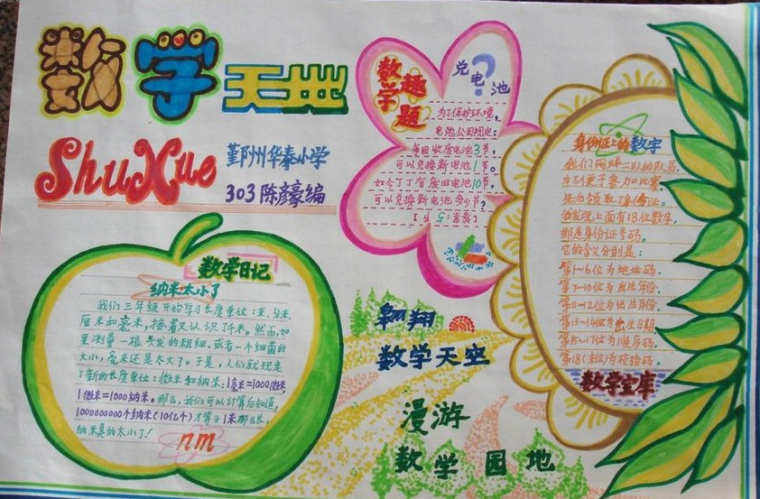 数学天地
ShuXue
鄞州华泰小学
303 陈彦豪编
数学趣题
兑电池?
为了保护环境,
电池公司规定:
每回收废电池3节,
可以兑换新电池1节。
如今丁丁有废旧电池10节,
可以兑换新电池多少节?
数学日记
纳米太小了
我们三年级开始学习长度单位:米、分米、
厘米和毫米,接着又认识了千米。然而,如
果测量一根头发的粗细,或者一个细菌的
大小,毫米还是太大了。于是,人们就规定
了新的长度单位:微米和纳米:1毫米=1000微米,
1微米=1000纳米。那么,我们可以计算后知道,
1000000000个纳米(10亿个)才等于1米那么长,
纳米真的太小了!
nm
翱翔
数学天空
漫游
数学园地
身份证上的数字
我们网球二队的队员,
为了便于参加比赛,
都是身份证号码。
它的含义分别是:
第1-6位为地址码。
第7-10位为出生年份
第11-12位为出生月份
第13-14位为出生日期
第15-17位为顺序码。
第18(末)位为校验码。
数学宝库